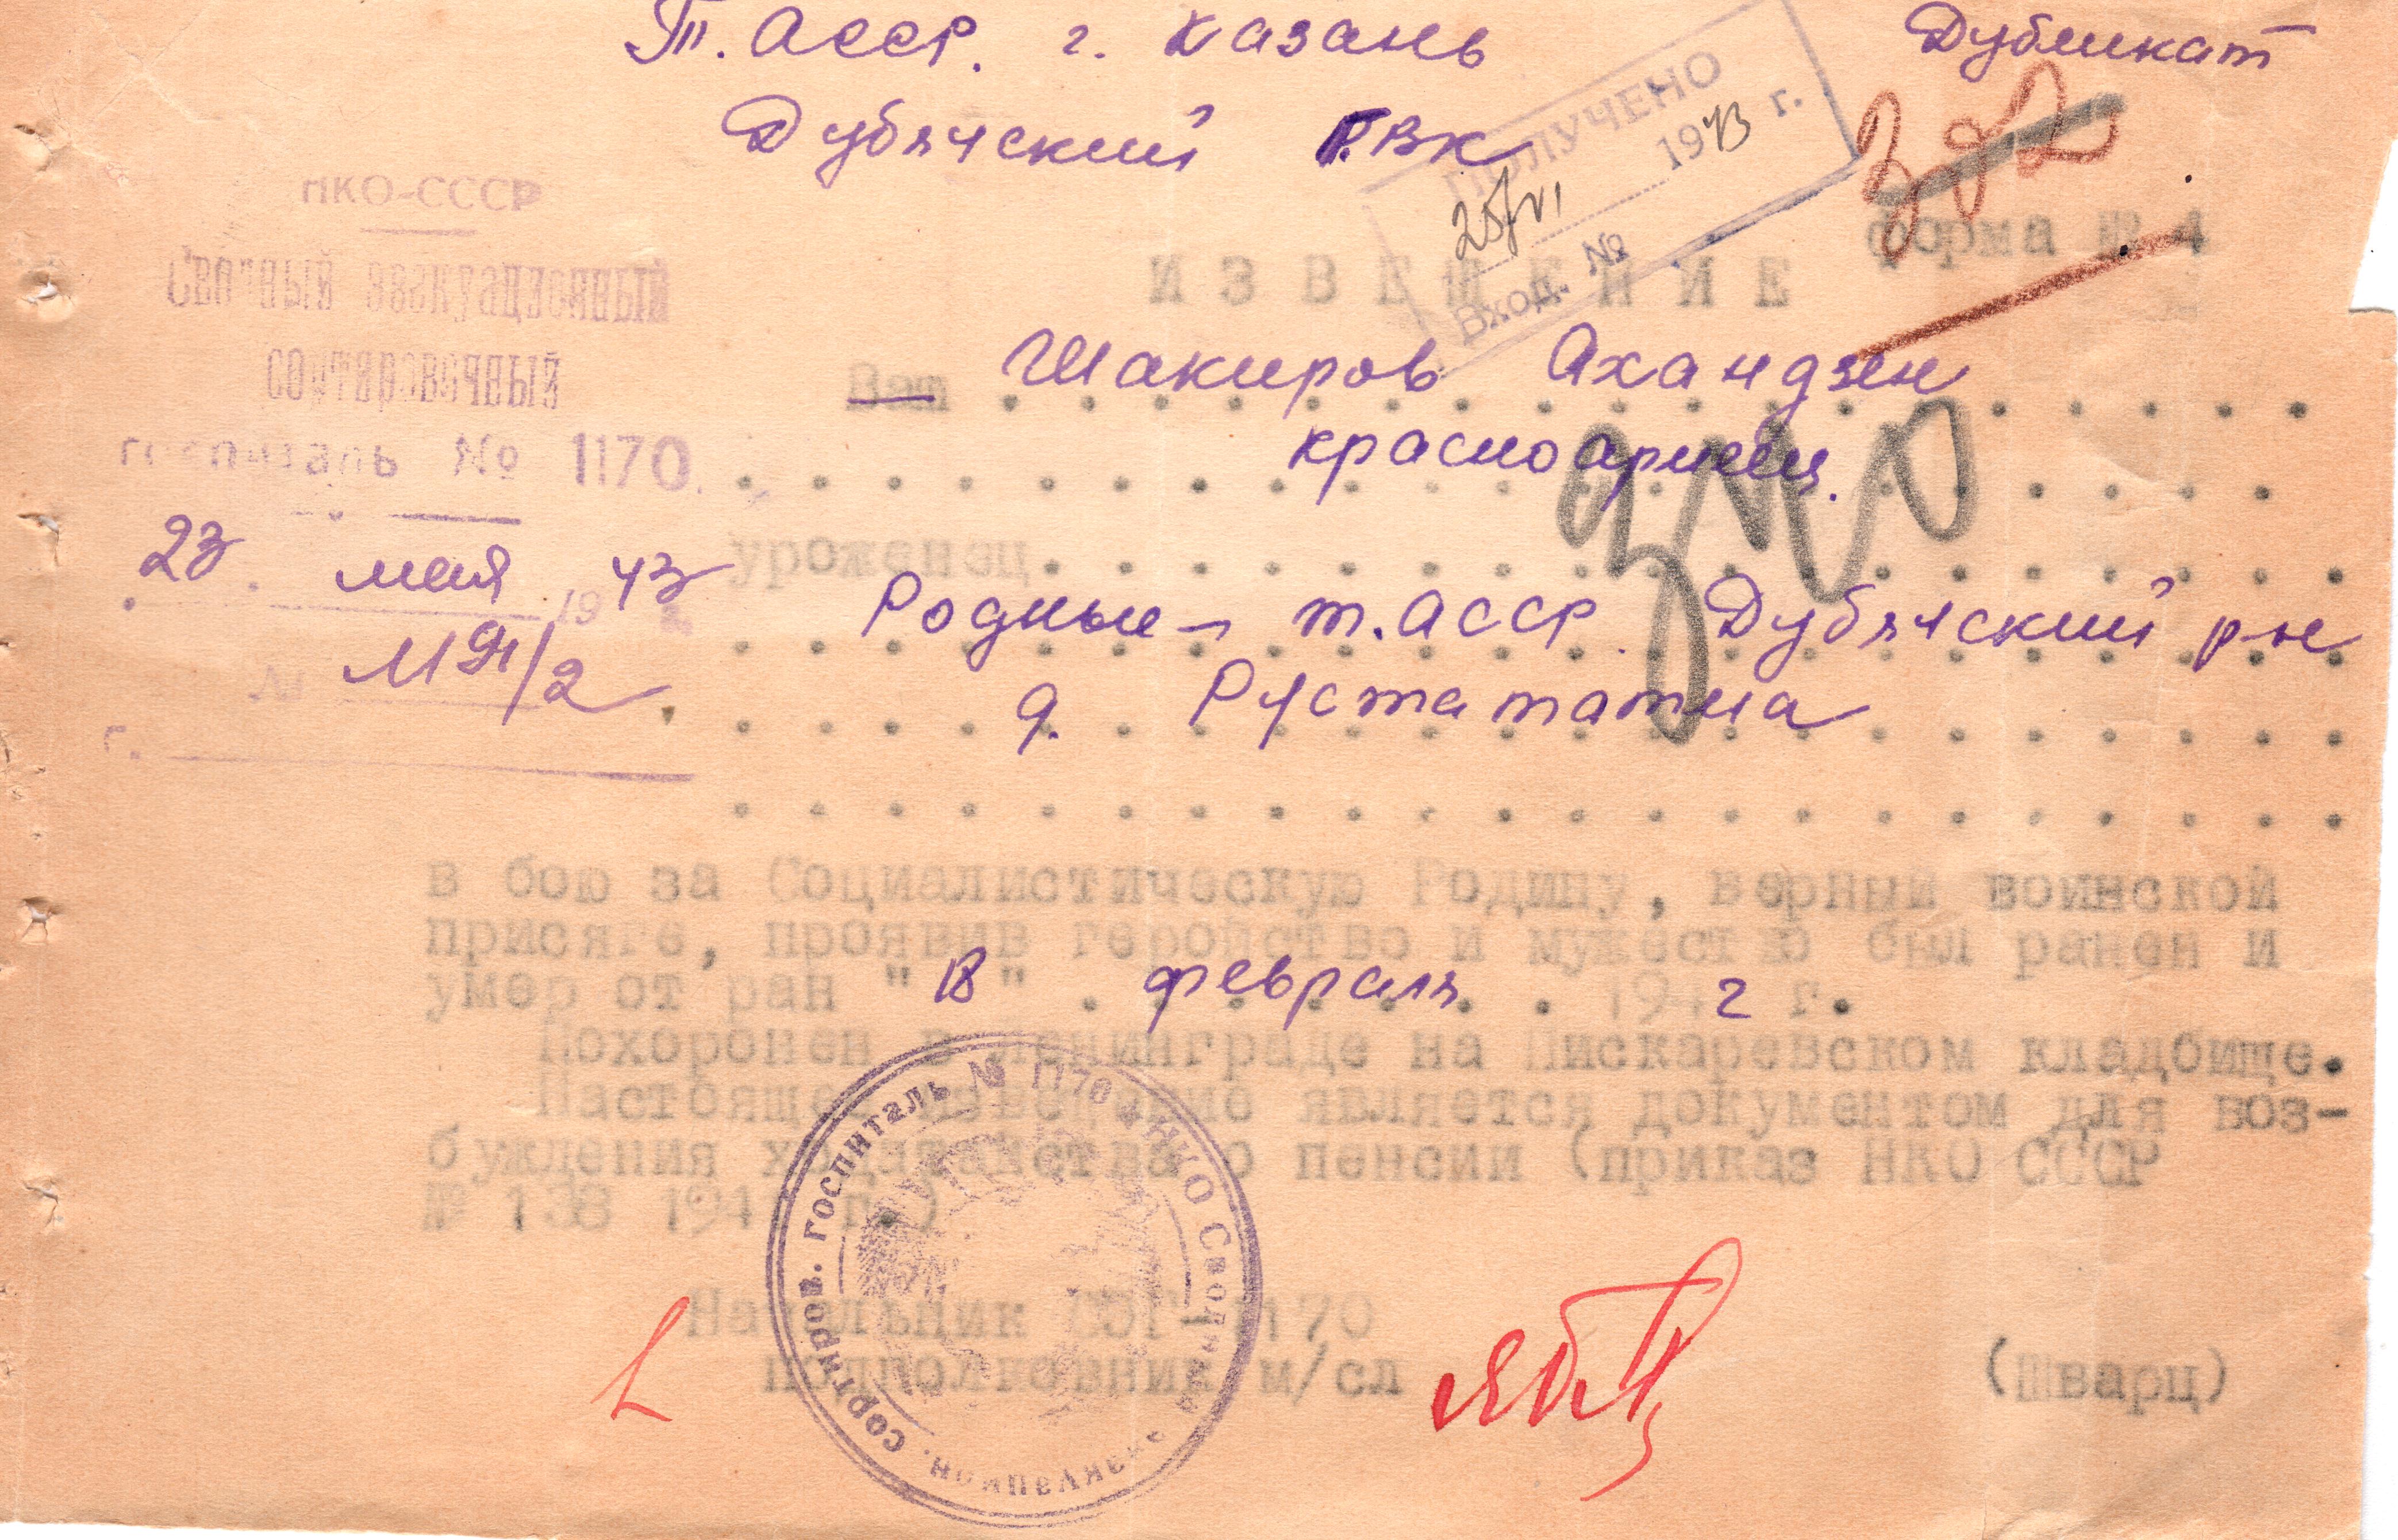 Т. АССР. г. Казань
Дубликат
Дубячский РВК
ПОЛУЧЕНО
25/VI 1943 г.
Вход. №
НКО-СССР
Сводный эвакуационный
сортировочный
госпиталь № 1170
23 мая 1943
№
г.
форма № 4
ИЗВЕЩЕНИЕ
Ваш Шакиров
красноармеец.
уроженец
Родные - т. АССР. Дубячский р-н
д.
в бою за Социалистическую Родину, верный воинской
присяге, проявив геройство и мужество был ранен и
умер от ран " 18 " февраля 1942 г.
Похоронен в Ленинграде на Пискаревском кладбище.
Настоящее извещение является документом для воз-
буждения ходатайства о пенсии (приказ НКО СССР
№ 138 1941 г.)
Начальник СЭГ-1170
подполковник м/сл
(Шварц)
НКО Сводный эвакуацион. сортиров. госпиталь № 1170